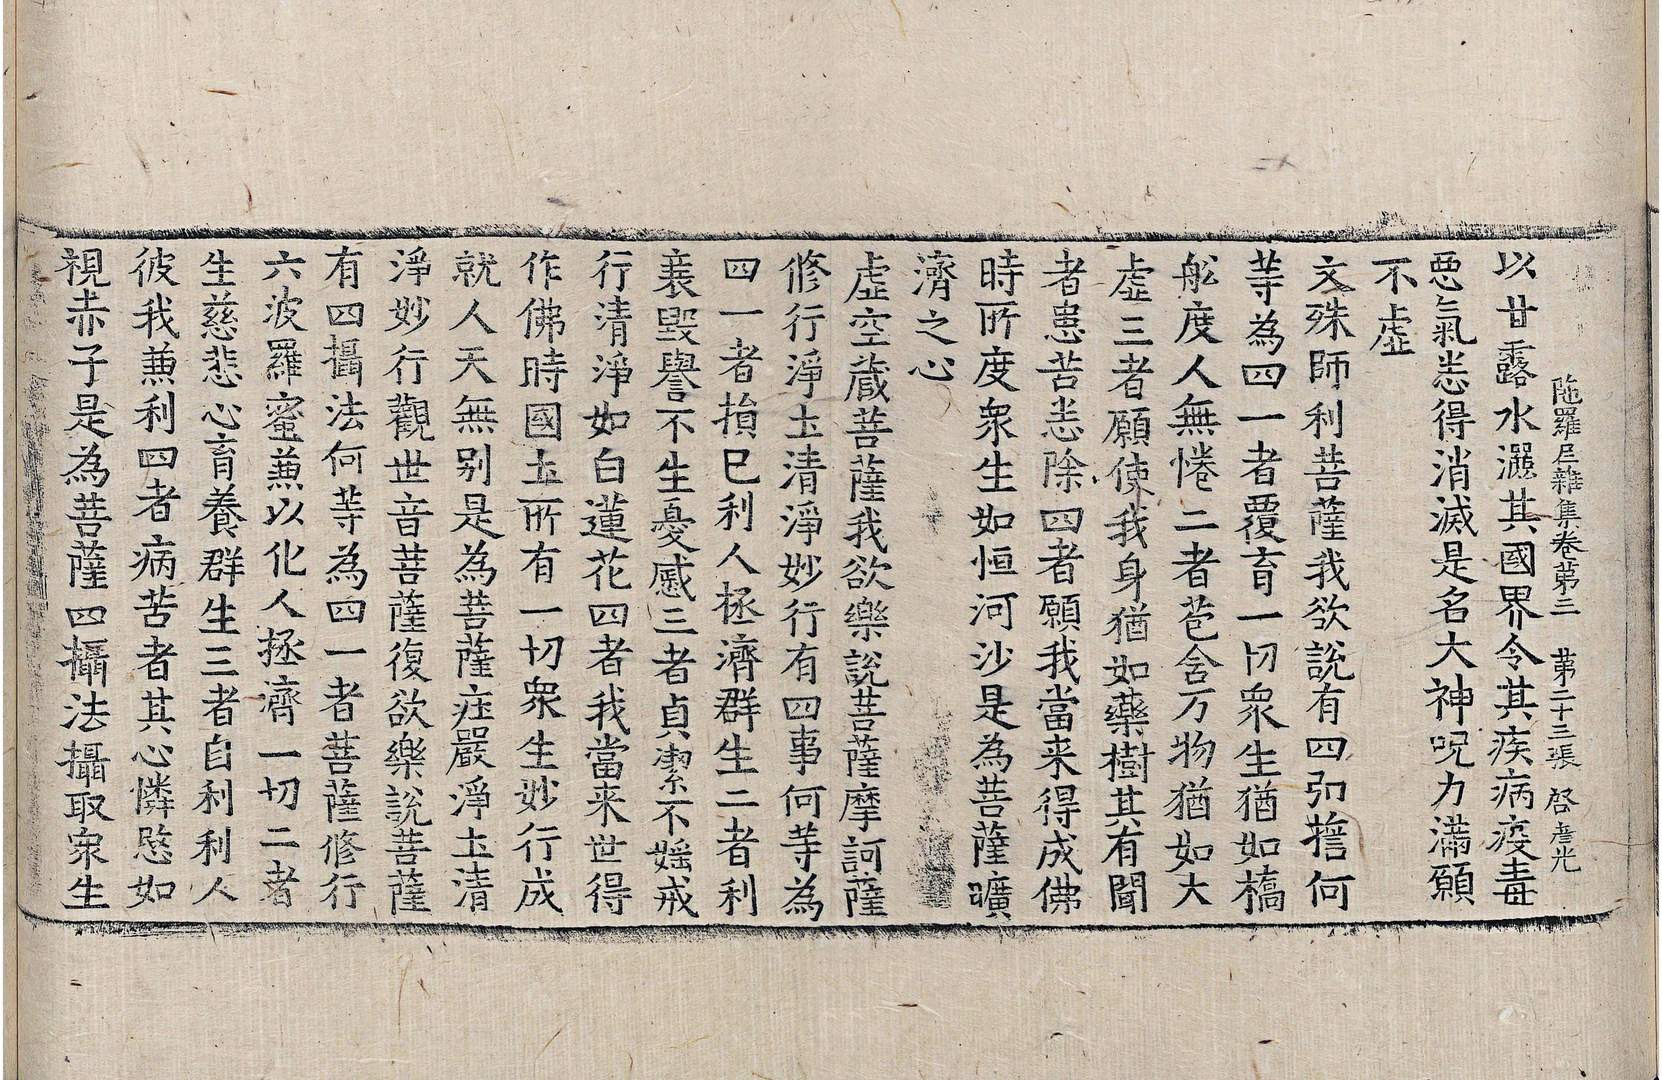 陁羅尼雜集卷第三 第二十三張 啓
以甘露水灑其國界令其疾病疫毒
惡氣悉得消滅是名大神呪力滿願
不虛
文殊師利菩薩我欲說有四弘誓何
等為四一者覆育一切衆生猶如橋
舩度人無惓二者苞含万物猶如大
虛三者願使我身猶如藥樹其有聞
者患苦悉除四者願我當来得成佛
時所度衆生如恒河沙是為菩薩曠
濟之心
虛空藏菩薩我欲樂說菩薩摩訶薩
修行淨土清淨妙行有四事何等為
四一者損已利人拯濟群生二者利
衰毀譽不生憂慼三者貞潔不婬戒
行清淨如白蓮花四者我當来世得
作佛時國土所有一切衆生妙行成
就人天無别是為菩薩疰嚴淨土清
淨妙行觀世音菩薩復欲樂說菩薩
有四攝法何等為四一者菩薩修行
六波羅蜜兼以化人拯濟一切二者
生慈悲心育養群生三者自利利人
彼我兼利四者病苦者其心憐愍如
視赤子是為菩薩四攝法攝取衆生